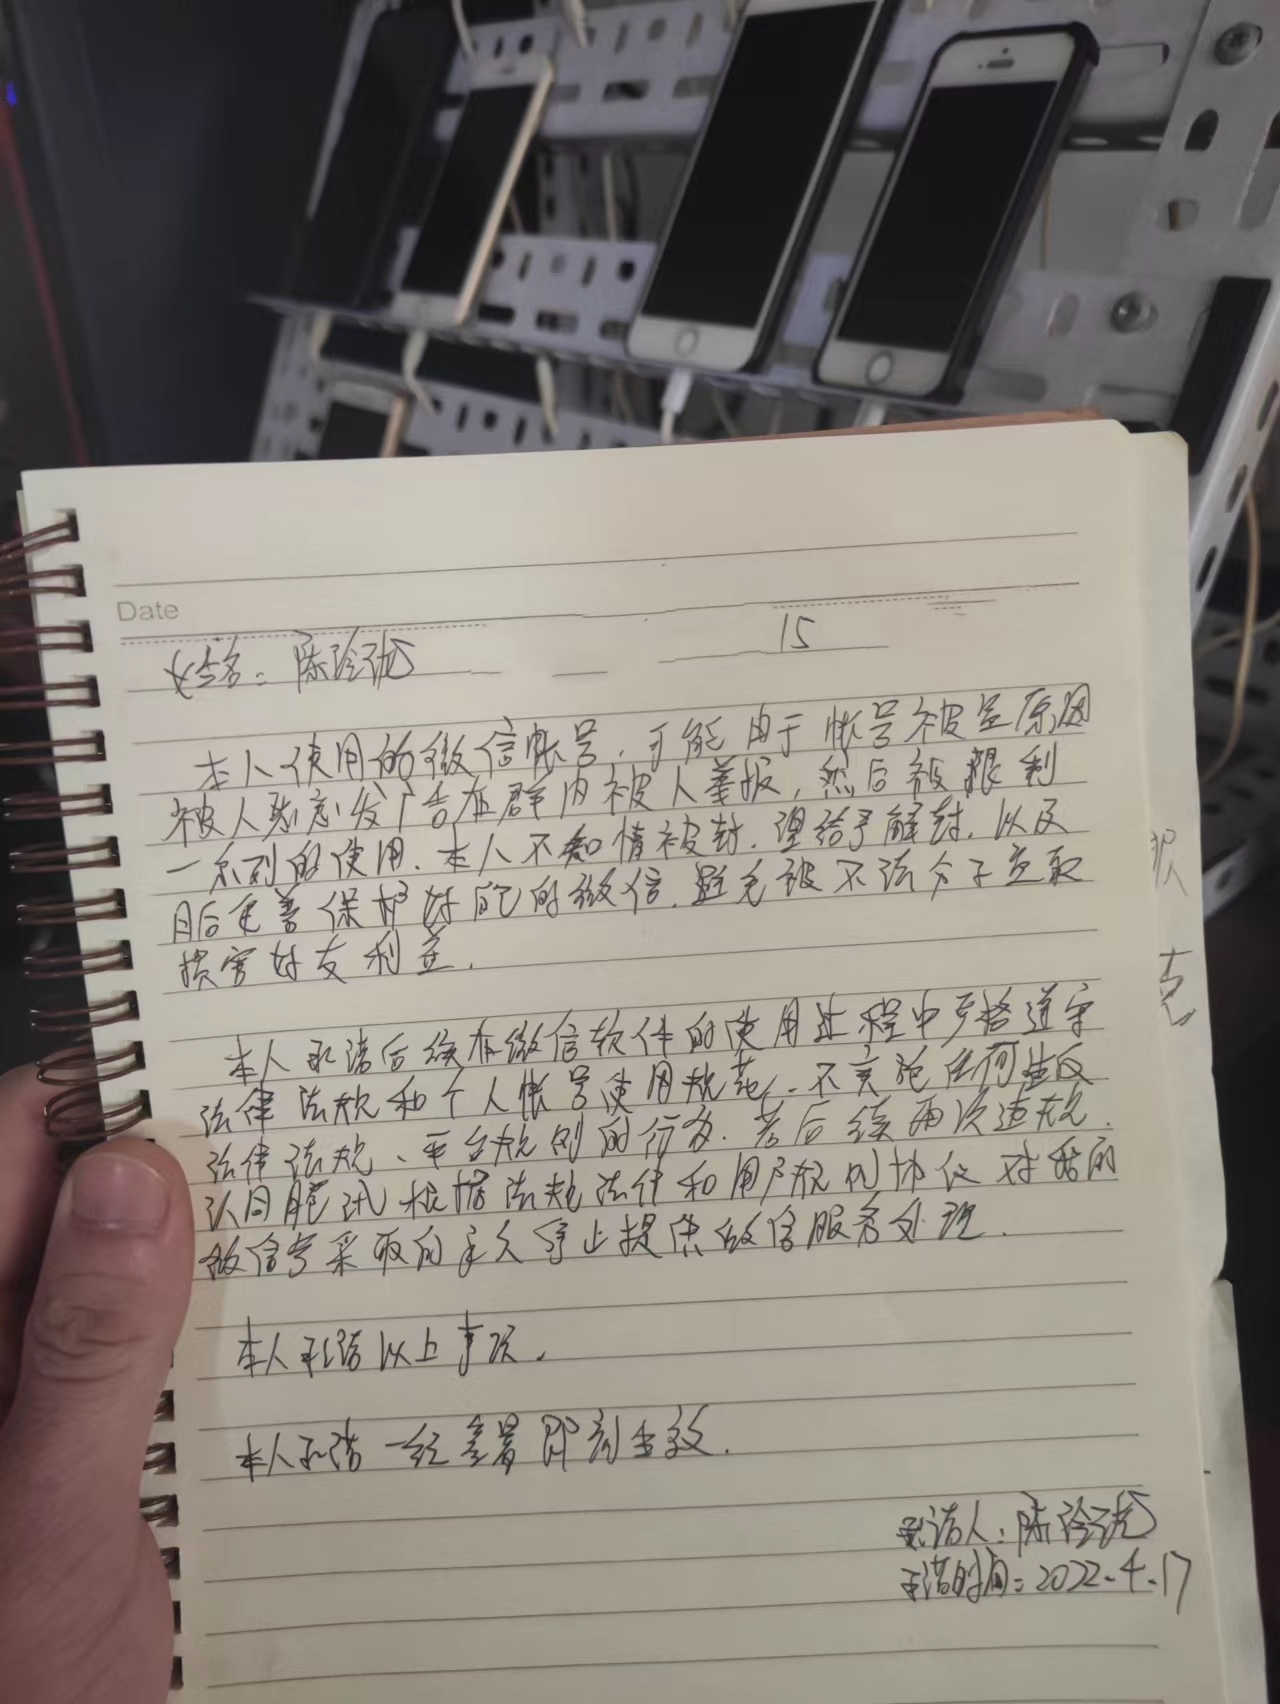 Date
15
姓名：陈玲珑
本人使用的微信帐号，可能由于帐号被盗原因
被人恶意发广告在群内被人举报，然后被限制
一系列的使用．本人不知情被封．望给予解封．以及
日后更善保护好自己的微信．避免被不法分子盗取
损害好友利益．
本人承诺后续在微信软件的使用过程中严格遵守
法律法规和个人帐号使用规范，不实施任何违反
法律法规、平台规则的行为．若后续再次违规．
认同腾讯根据法规法律和用户规则协议对我的
微信号采取的永久停止提供微信服务处理．
本人承诺以上事项．
本人承诺一经签署即刻生效．
承诺人：陈玲珑
承诺时间：2022.4.17